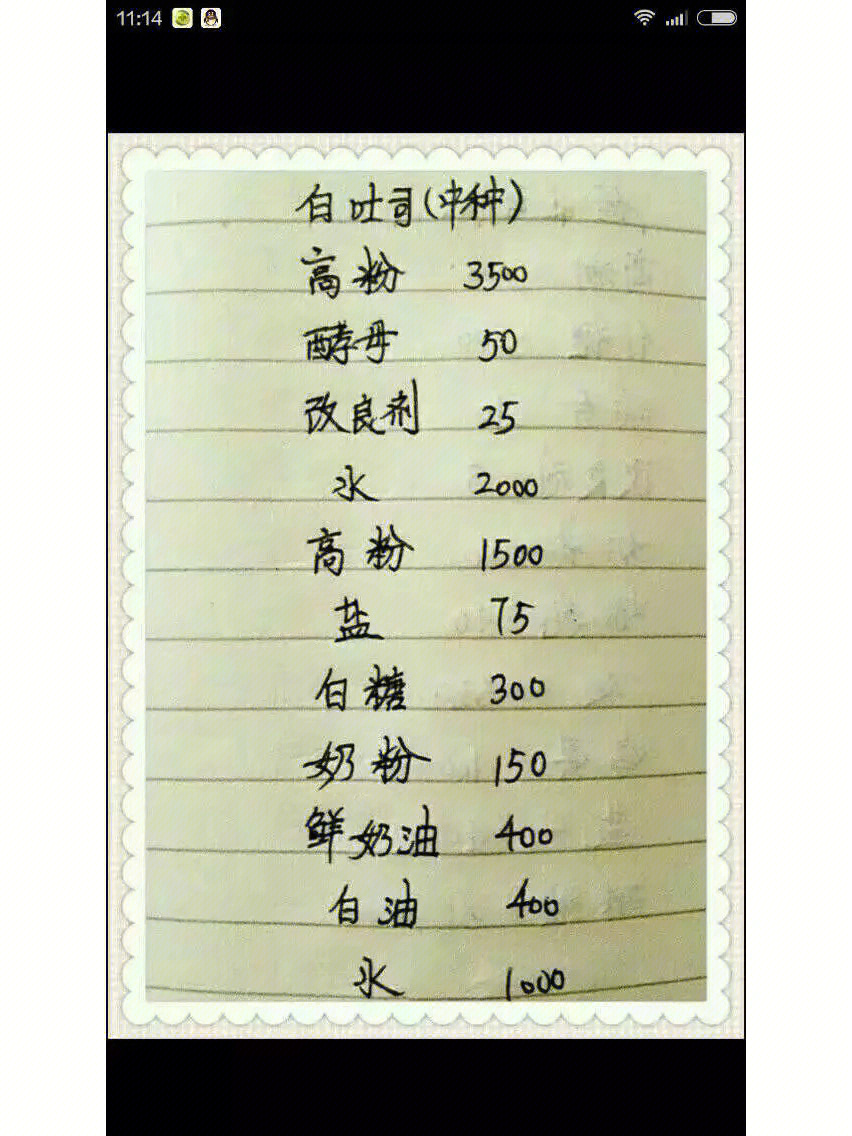 11:14
白吐司(中种)
高粉 3500
酵母 50
改良剂 25
水 2000
高粉 1500
盐 75
白糖 300
奶粉 150
鲜奶油 400
白油 400
水 1000